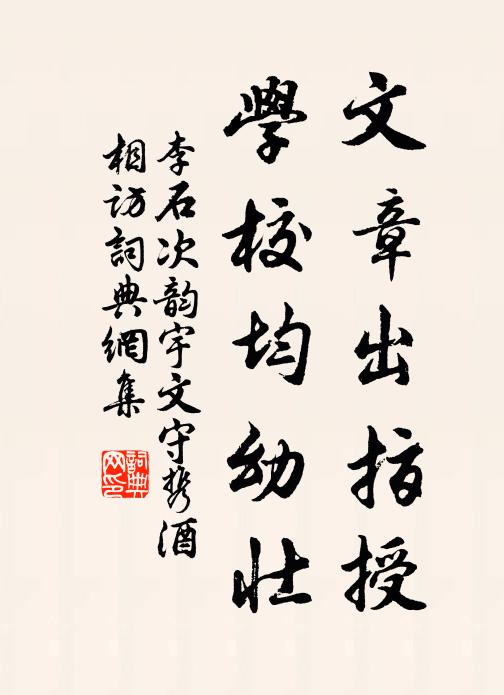 文章出指授
學校均幼壯
李石次韵宇文守携酒
相訪詞典網集
詞典網印